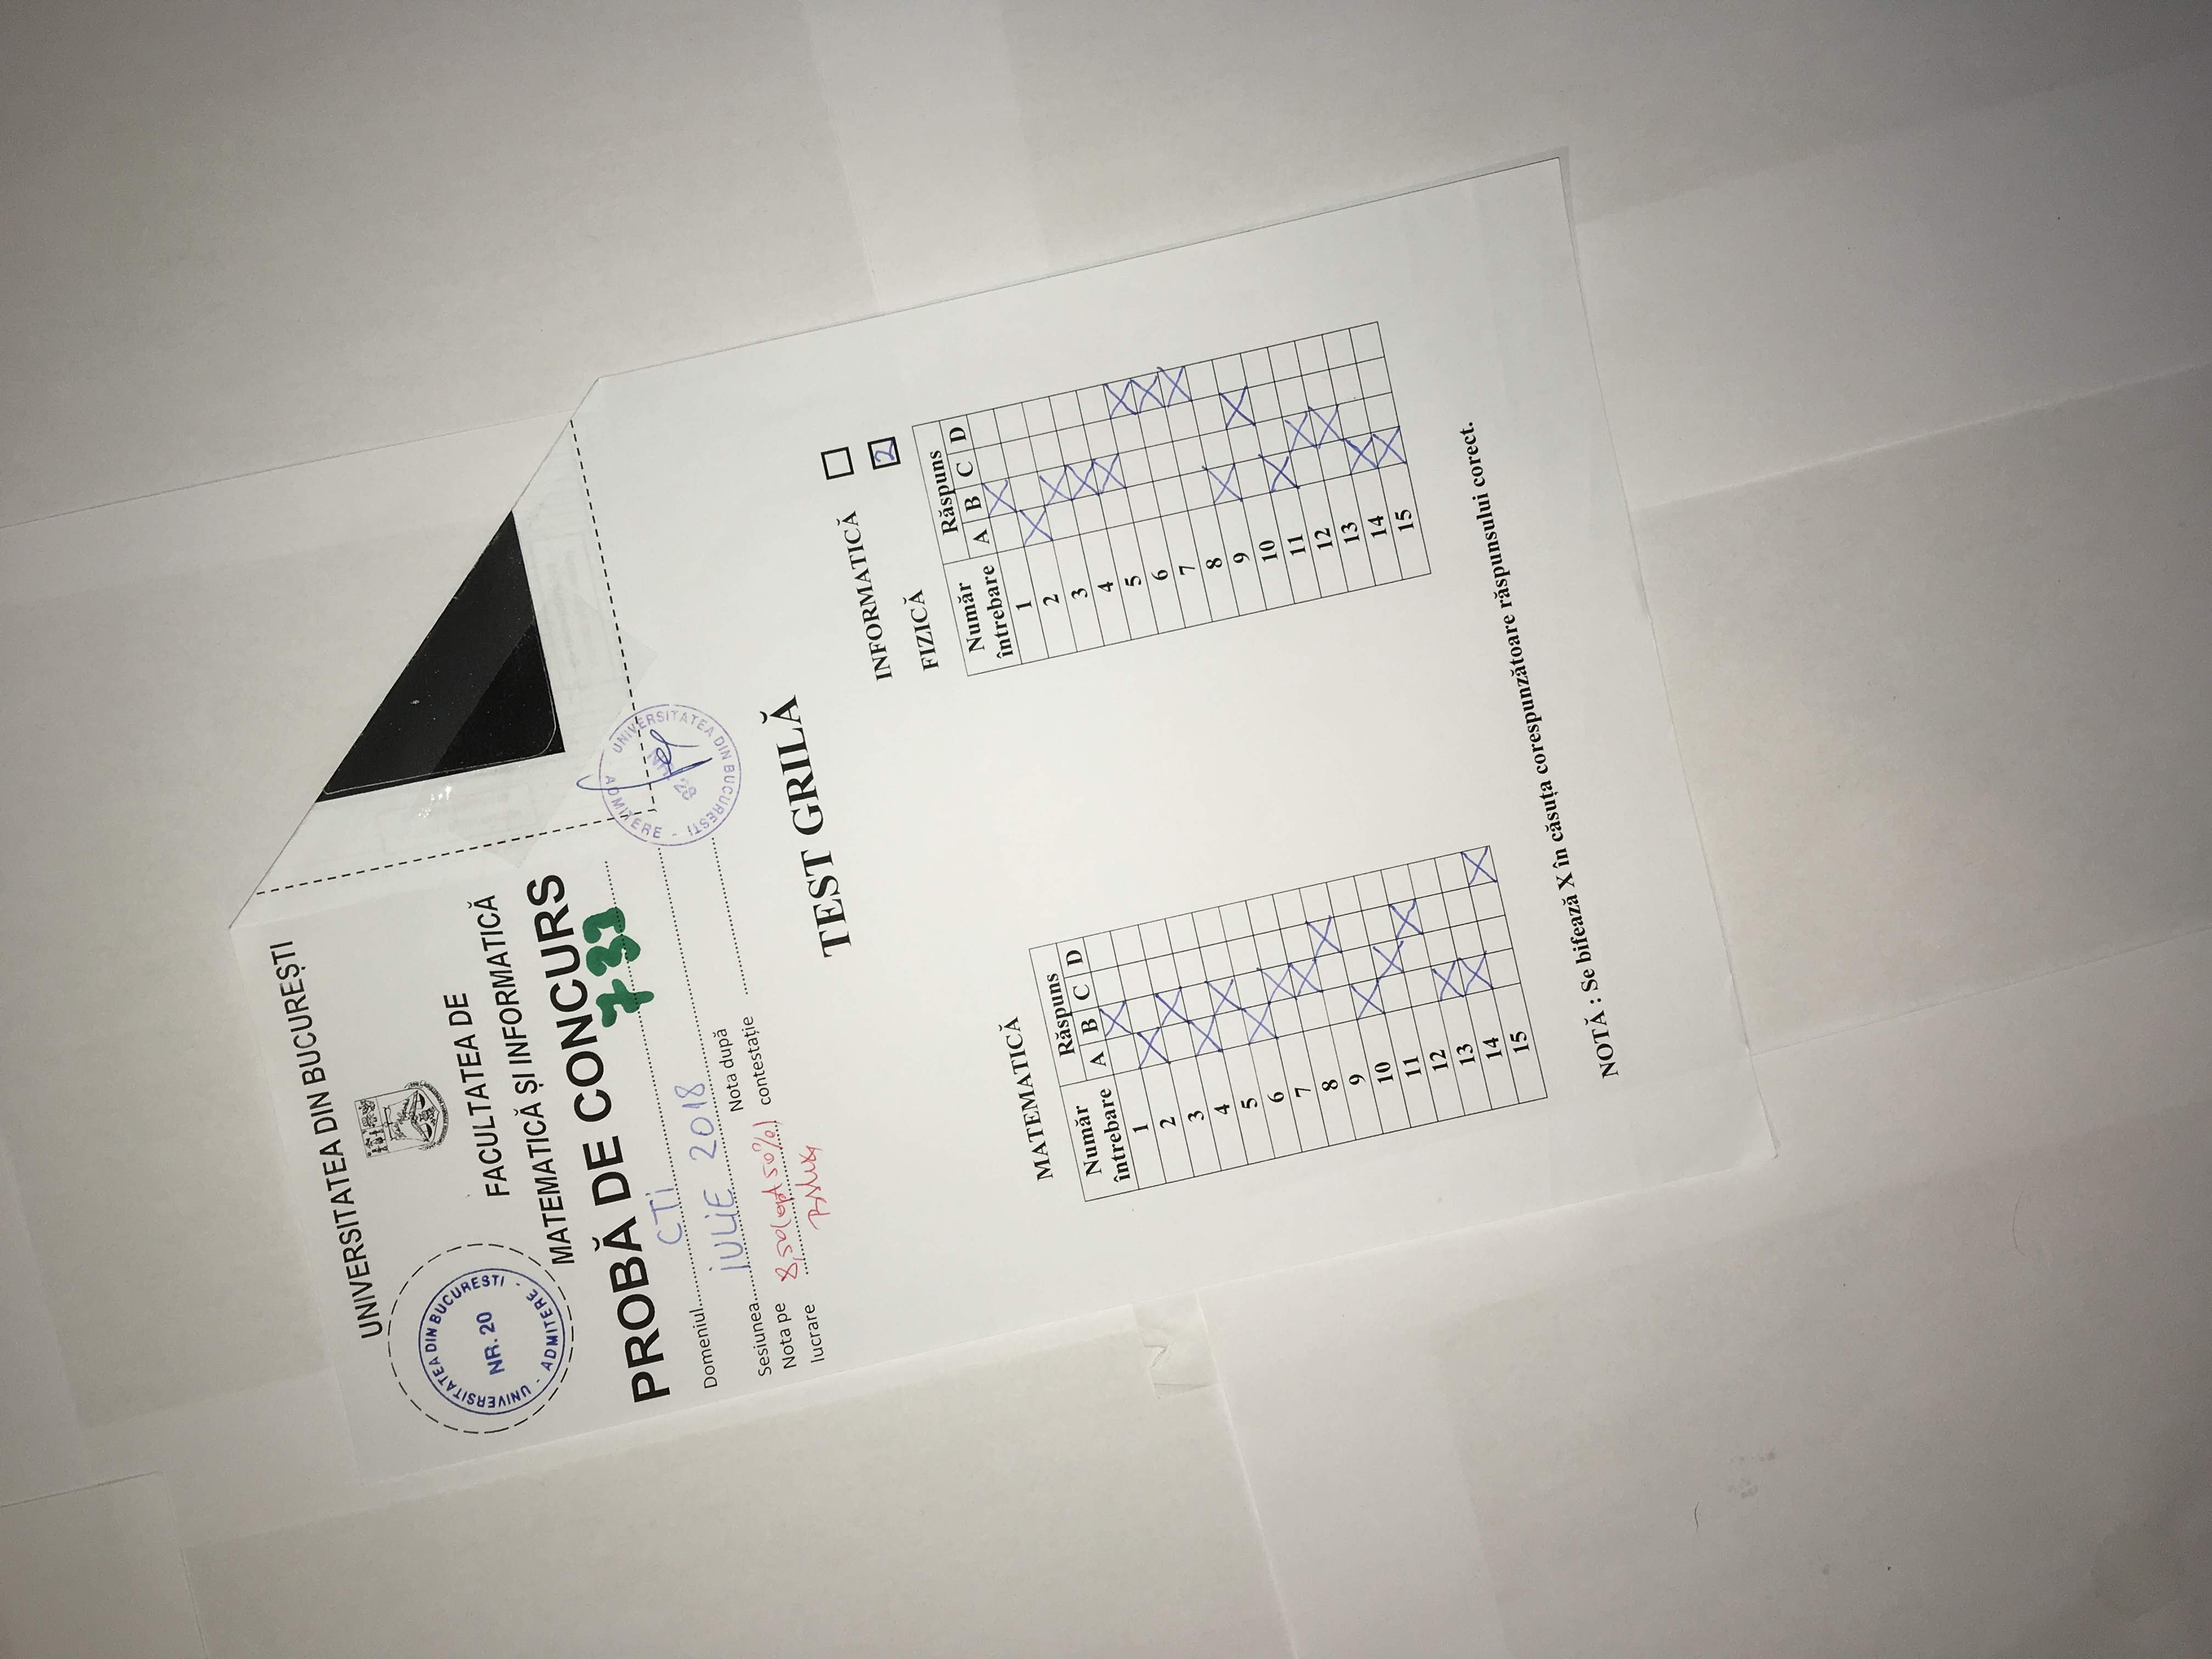 UNIVERSITATEA DIN BUCUREȘTI
UNIVERSITATEA DIN BUCURESTI - ADMITERE -
NR. 20
FACULTATEA DE
MATEMATICĂ ȘI INFORMATICĂ
PROBĂ DE CONCURS
733
Domeniul CTi
Sesiunea iULiE 2018
Nota pe lucrare 8,50 (opt 50%)
Nota după contestație
UNIVERSITATEA DIN BUCURESTI - ADMITERE -
TEST GRILĂ
INFORMATICĂ
FIZICĂ 2
MATEMATICĂ
Număr întrebare Răspuns
A B C D
1 X
2 X
3 X
4 X
5 X
6 X
7 X
8 X
9 X
10 X
11 X
12 X
13 X
14 X
15 X
Număr întrebare Răspuns
A B C D
1 X
2 X
3 X
4 X
5 X
6 X
7 X
8 X
9 X
10 X
11 X
12 X
13 X
14 X
15 X
NOTĂ : Se bifează X în căsuța corespunzătoare răspunsului corect.